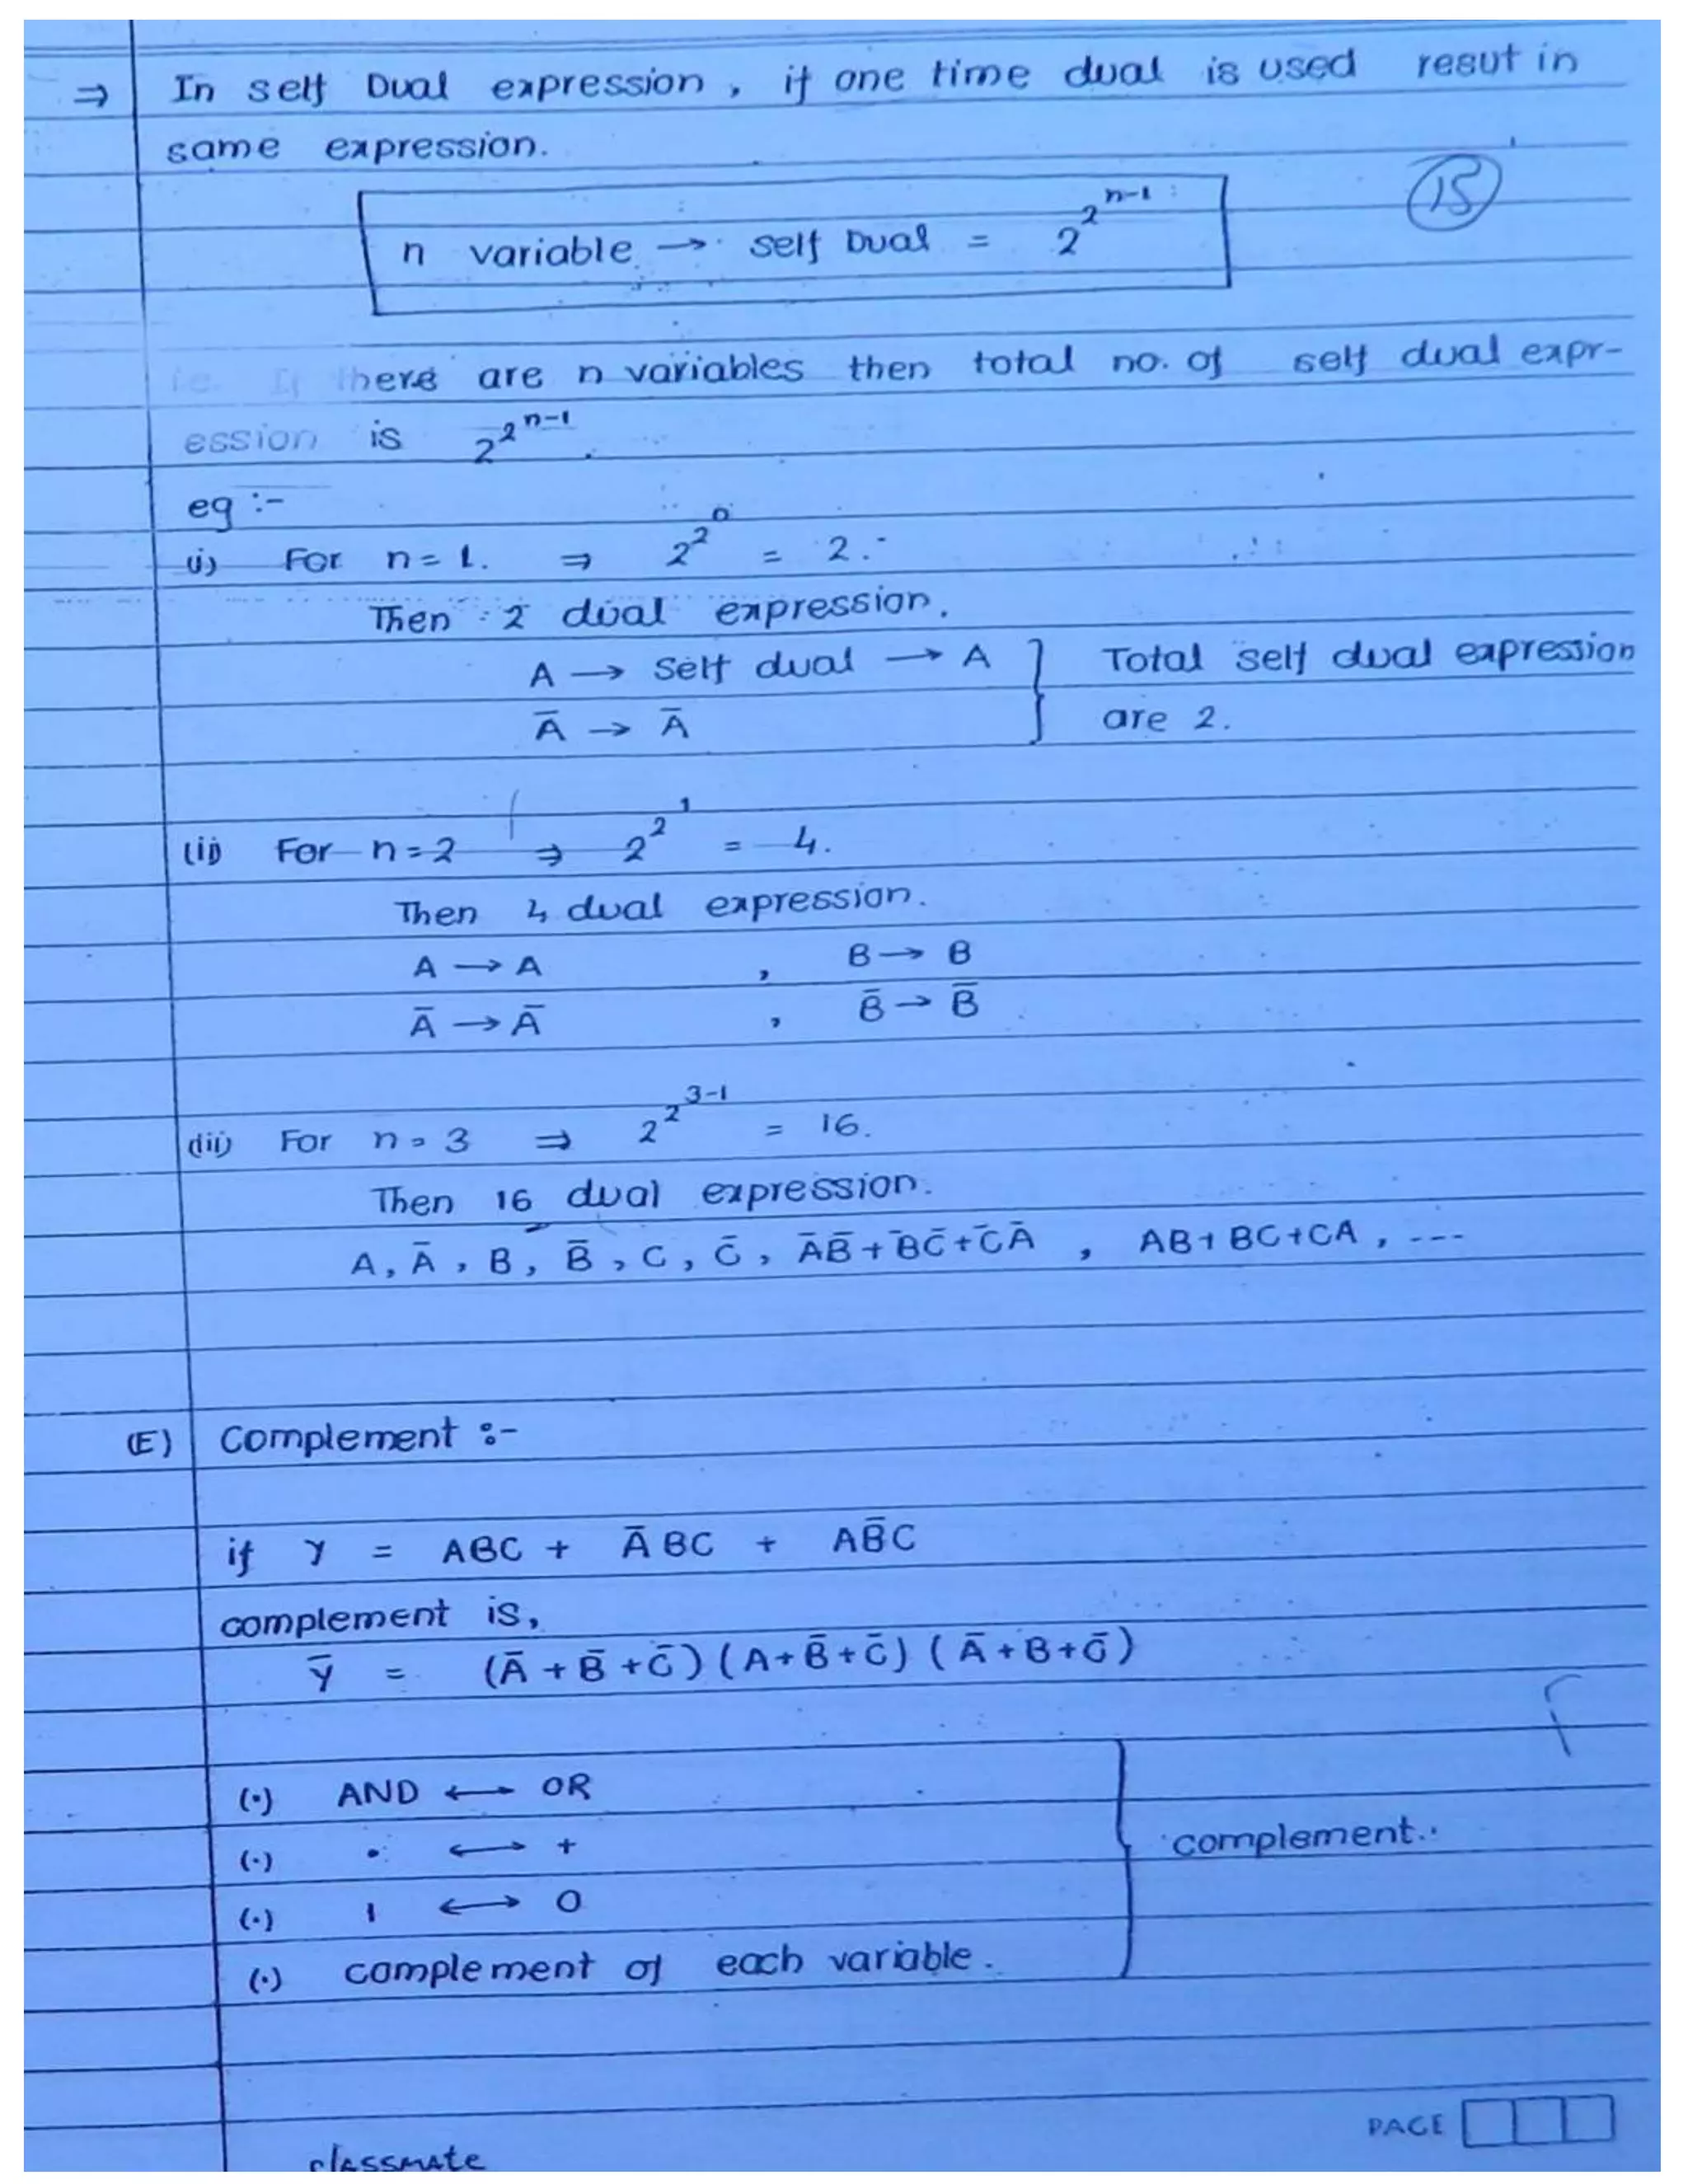 ⇒ In self Dual expression, if one time dual is used resut in
same expression.
15
n variable → self Dual = 2^2^n-1
ie. If there are n variables then total no. of self dual expr-
ession is 2^2^n-1.
eg :-
(i) For n = 1. ⇒ 2^2^0 = 2.
Then 2 dual expression.
A → Self dual → A } Total self dual expression
Ā → Ā are 2.
(ii) For n = 2 ⇒ 2^2^1 = 4.
Then 4 dual expression.
A → A , B → B
Ā → Ā , B̄ → B̄
(iii) For n = 3 ⇒ 2^2^3-1 = 16.
Then 16 dual expression.
A, Ā, B, B̄, C, C̄, ĀB̄ + B̄C̄ + C̄Ā , AB + BC + CA , ---
(E) Complement :-
if Y = ABC + ĀBC + AB̄C
complement is,
Ȳ = (Ā + B̄ + C̄) (A + B̄ + C̄) (Ā + B + C̄)
(•) AND ↔ OR
(•) • ↔ +
(•) 1 ↔ 0
complement.
(•) complement of each variable.
PAGE
classmate